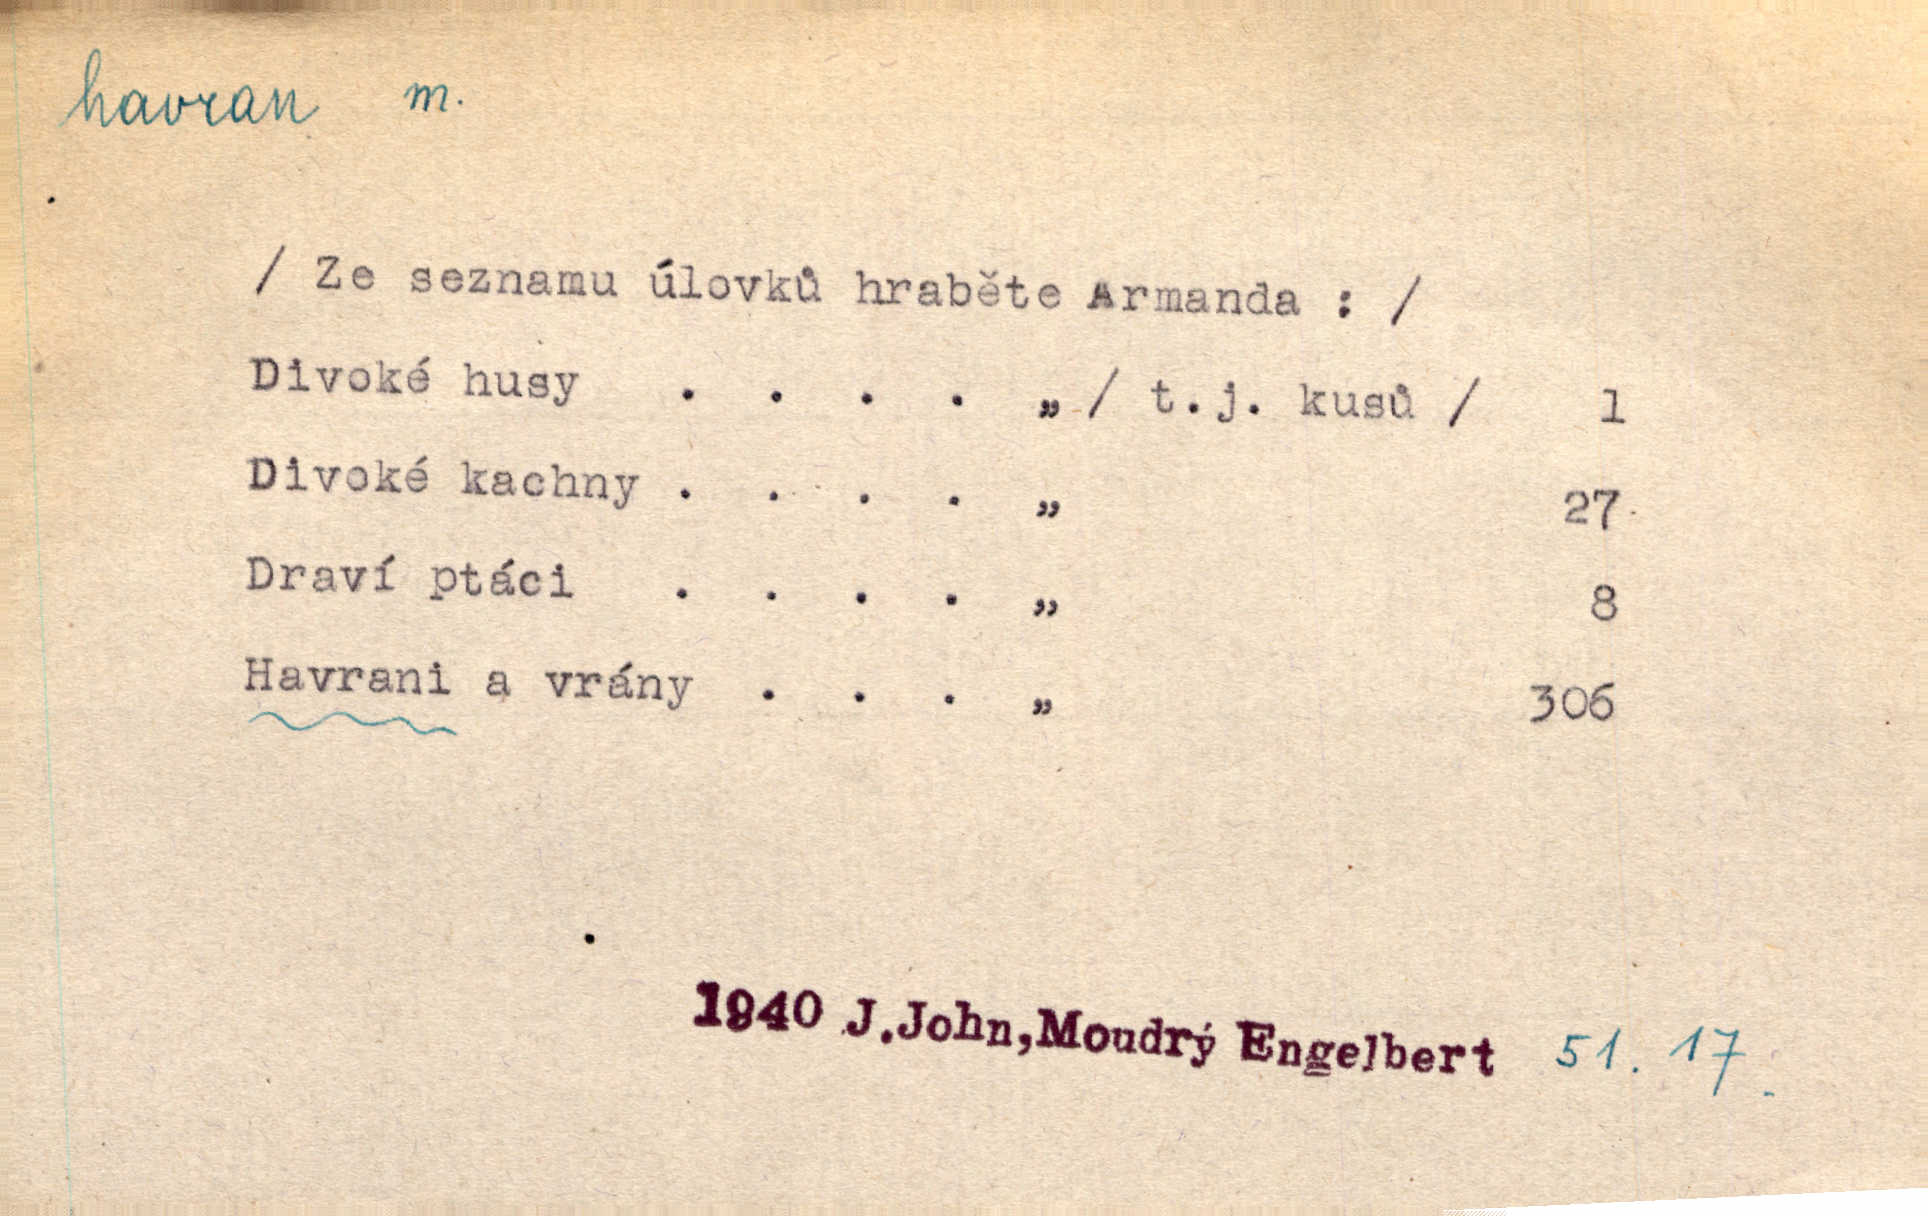 havran m.
/ Ze seznamu úlovků hraběte Armanda : /
Divoké husy . . . . „ / t.j. kusů / 1
Divoké kachny . . . . „ 27
Draví ptáci . . . . „ 8
Havrani a vrány . . . „ 306
1940 J.John,Moudrý Engelbert 51. 17.